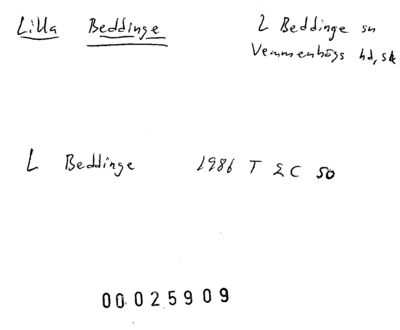 Lilla Beddinge
L Beddinge sn
Vemmenhögs hd, Sk
L Beddinge 1986 T ΣC 50
00025909